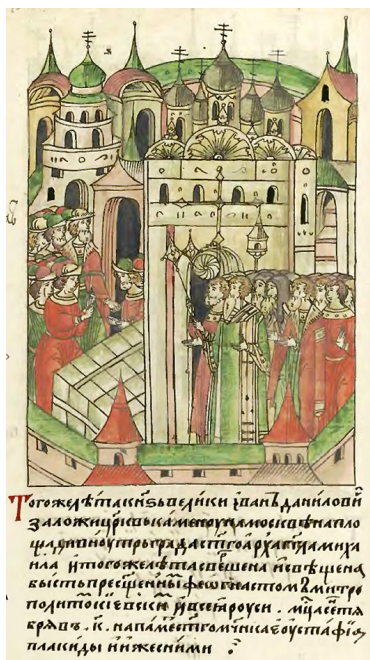 Того же лѣта кн҃ѕь велики і҆ванъ данилови
заложи цр҃квь каменоу на москвѣ на пло
щади внѹтрь града ст҃го арха҃гг҃ла миха
ила и҆ того же лѣта свершена и҆ свещена
бысть пресщ҃еннымъ феѡгнастомъ митро
политомъ кіевскимъ и҆ всеѧ роуси . мц҃а сетѧ
брѧ въ .к҃. на памѧть ст҃го мч҃нка еоустаѳїѧ
плакиды и҆ иже с ними